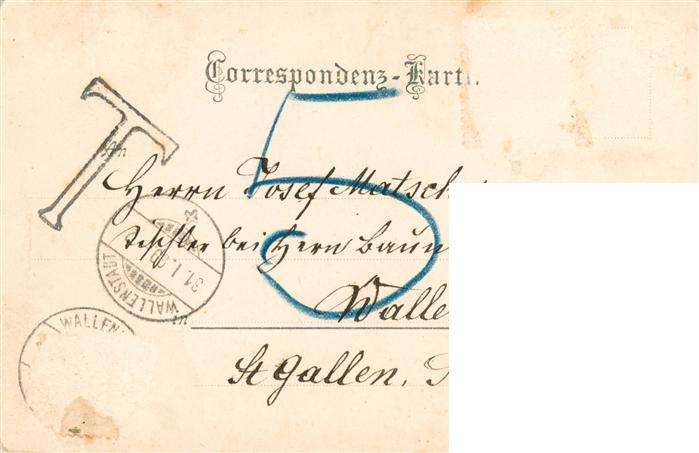 Correspondenz-Kart
T
5
An
Herrn Josef Matsch
Tischler bei Hern Baum
Walle
in
St Gallen.
WALLENSTADT
31.I.
WALLEN